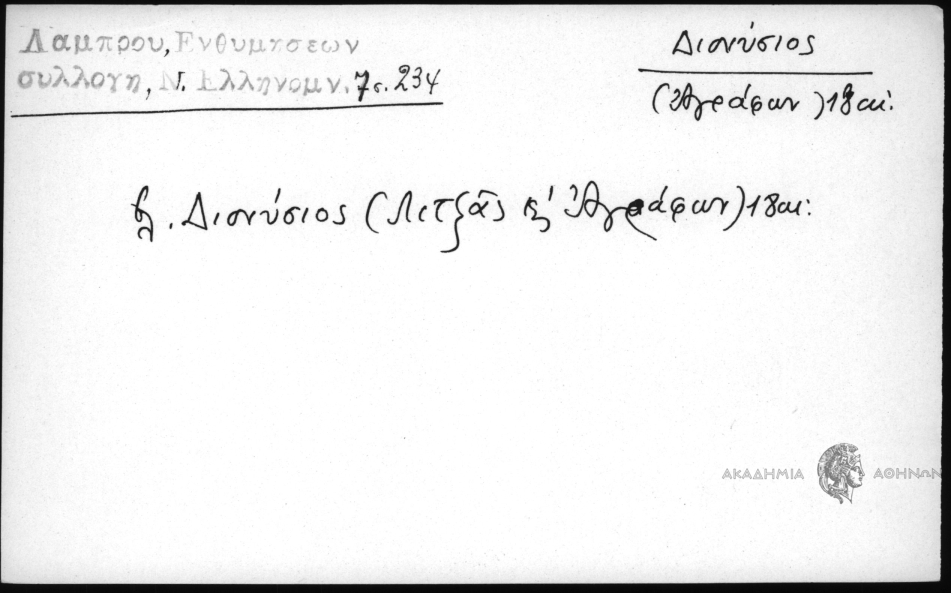 Λαμπρου, Ενθυμησεων
συλλογη, Ν. Ελληνομν. 7 σ. 234
Διονύσιος
(Ἀγράφων) 18 αι.
βλ. Διονύσιος (Λιτζᾶς κ' Ἀγράφων) 18 αι.
ΑΚΑΔΗΜΙΑ ΑΘΗΝΩΝ